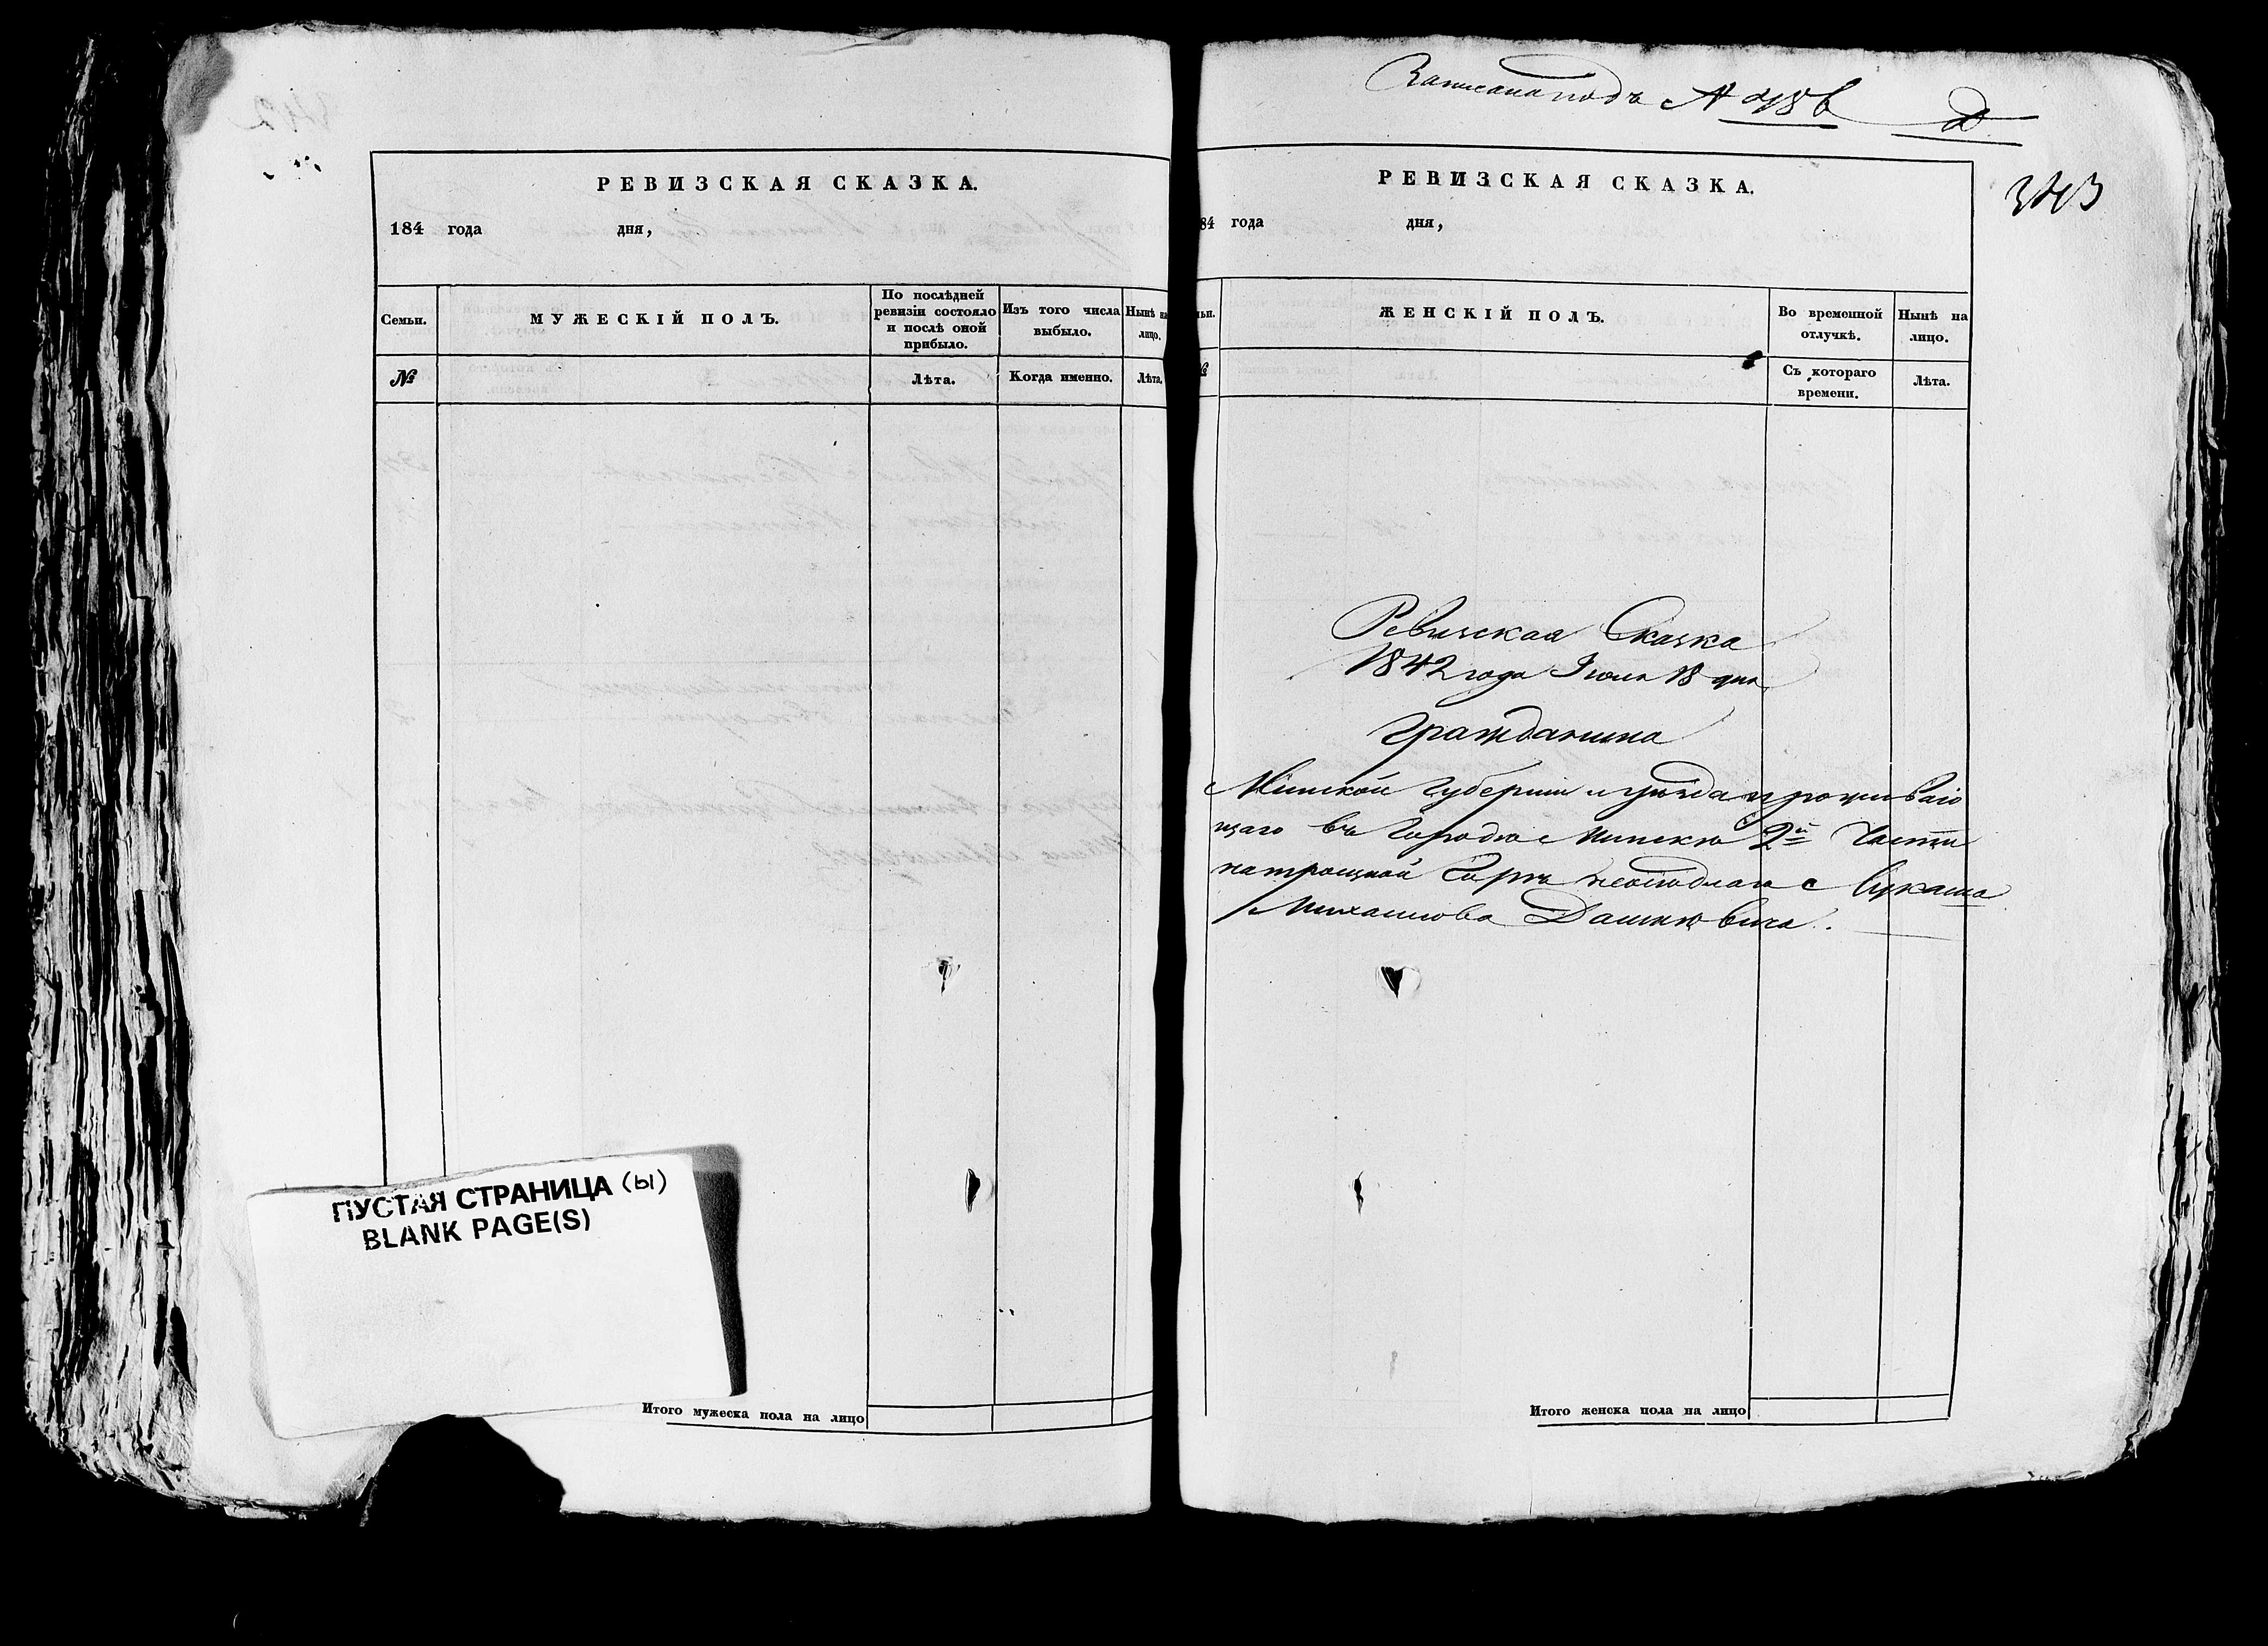 РЕВИЗСКАЯ СКАЗКА.
184 года дня,
Семьи.
МУЖЕСКІЙ ПОЛЪ.
По послѣдней ревизіи состояло и послѣ оной прибыло.
Изъ того числа выбыло.
Нынѣ на лицо.
№
Лѣта.
Когда именно.
Лѣта.
ПУСТАЯ СТРАНИЦА (Ы)
BLANK PAGE(S)
Итого мужеска пола на лицо
Записана подъ №
343
РЕВИЗСКАЯ СКАЗКА.
84 года дня,
ЖЕНСКІЙ ПОЛЪ.
Во временной отлучкѣ.
Нынѣ на лицо.
Съ котораго времени.
Лѣта.
Ревизская Сказка
1842 года Іюля 18 дня
Гражданина
Минской Губерніи и уѣзда проживаю
щаго въ Городѣ Минскѣ 2й Части
на троицкой Горѣ Лукаша
Михаилова Дашкевича.
Итого женска пола на лицо